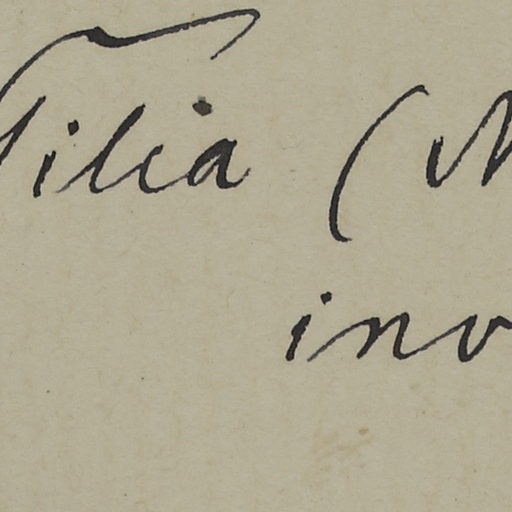 Tilia (
inv